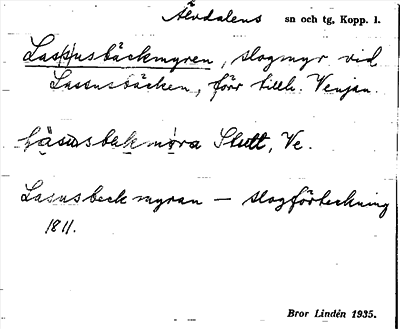 Älvdalens sn och tg, Kopp. l.
Lassusbäckmyren, slogmyr vid
Lassusbäcken, förr tillh. Venjan.
Läsusbekmöra Slutt, Ve.
Lasusbeckmyran – slogförteckning
1811.
Bror Lindén 1935.